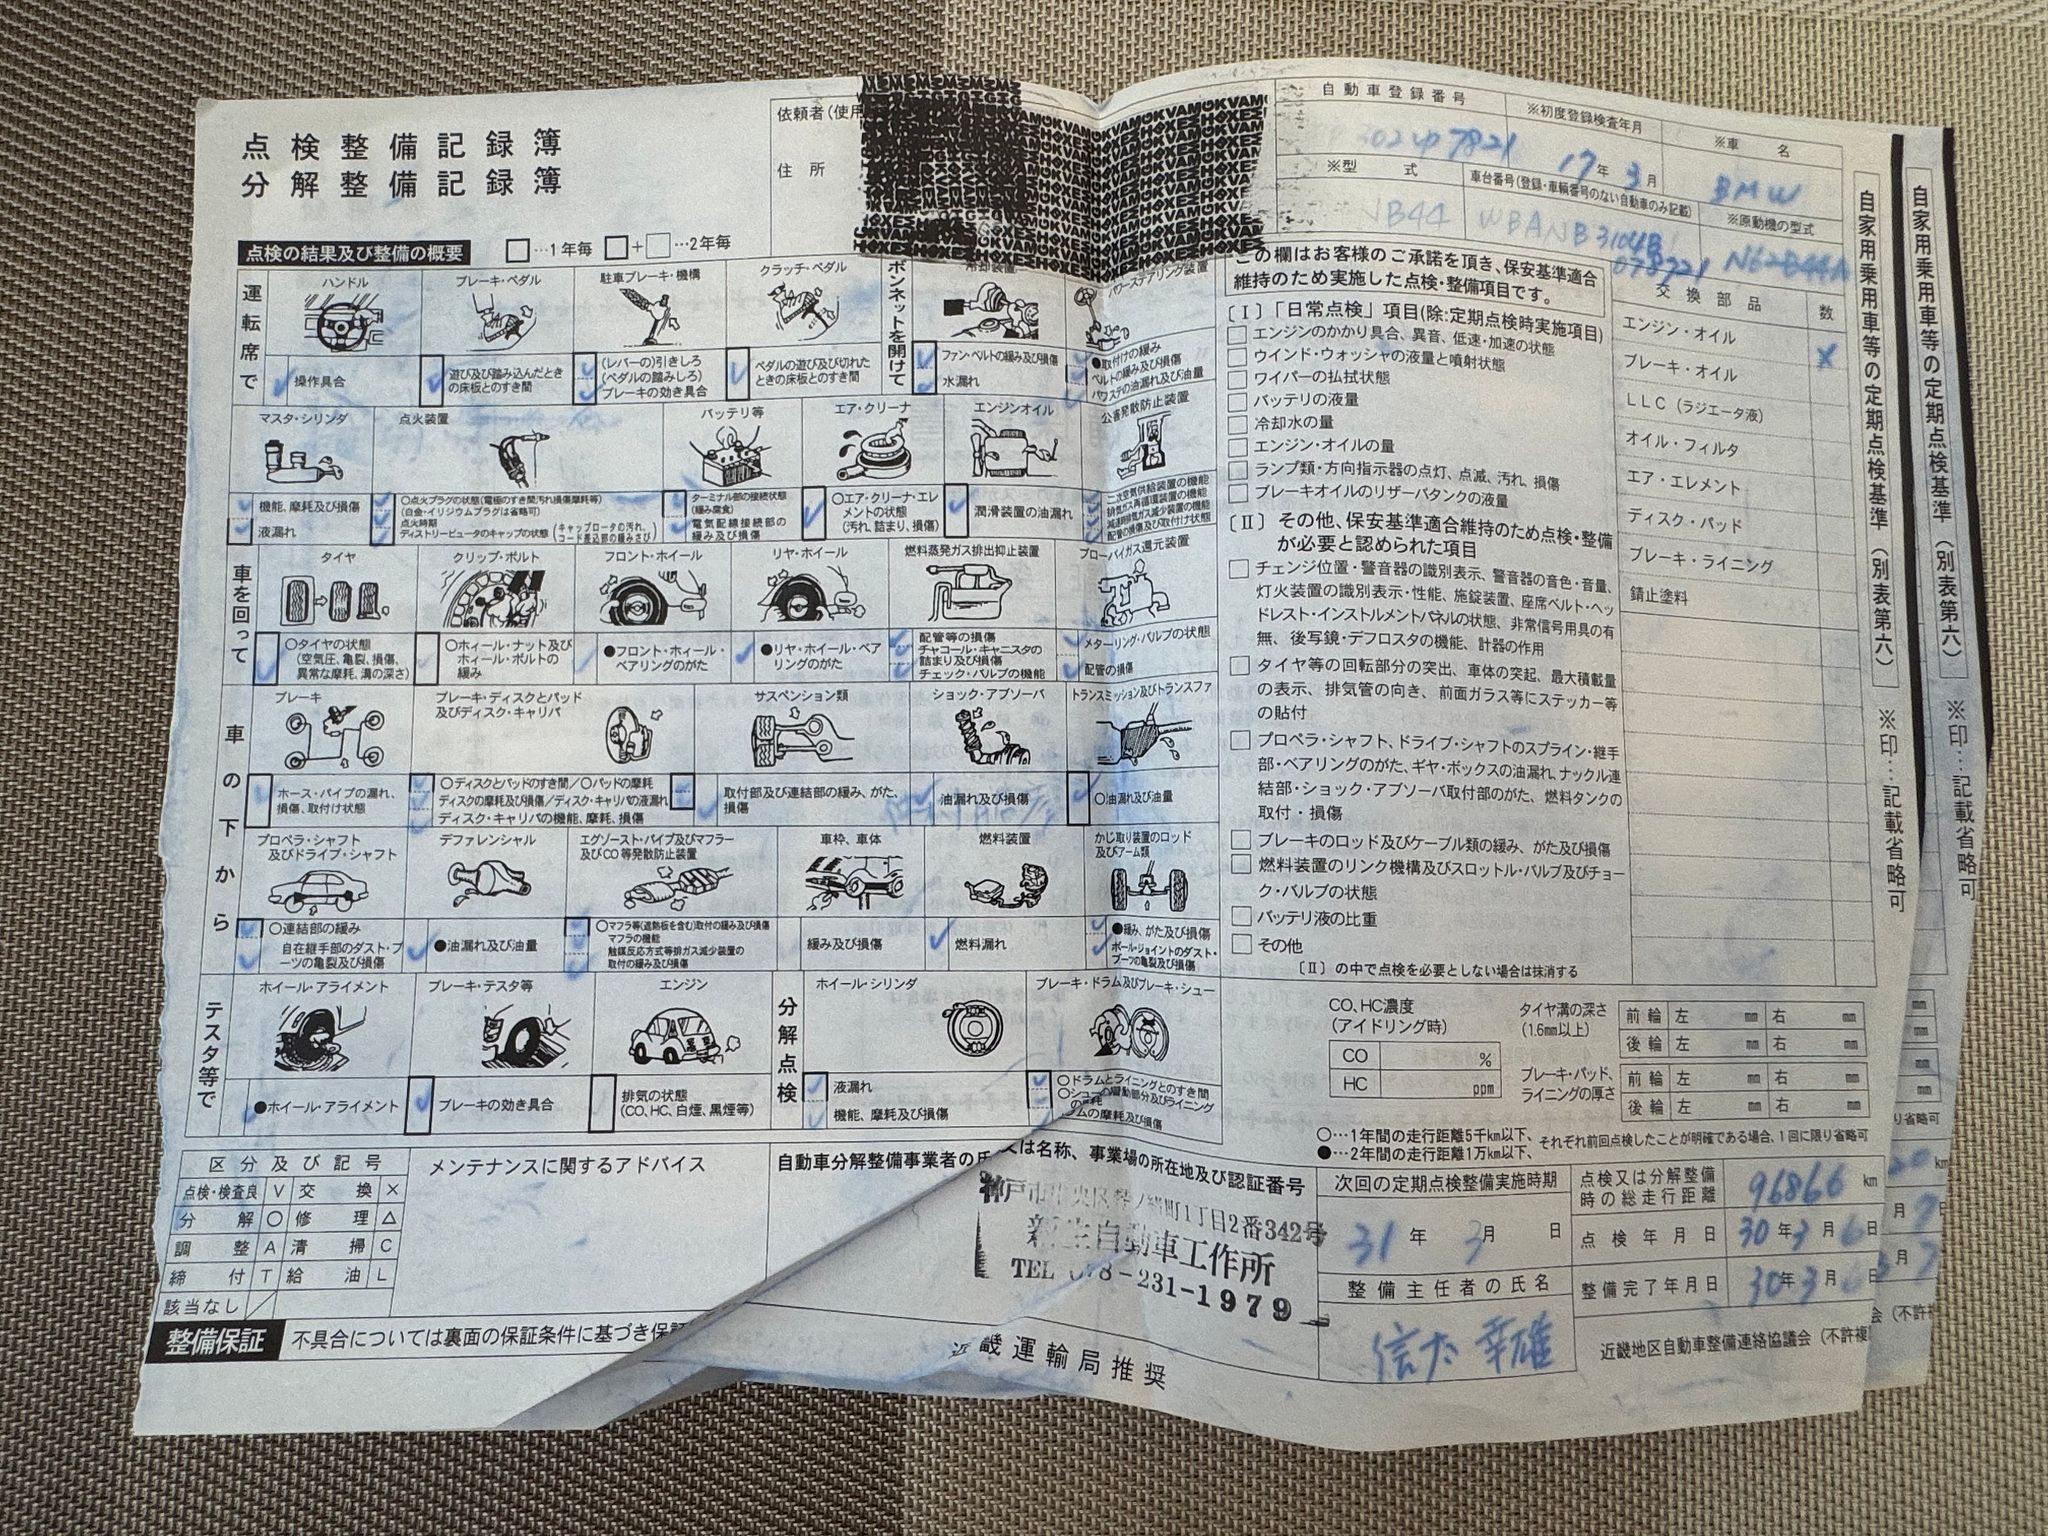 点検整備記録簿
分解整備記録簿
依頼者(使用
住所
自動車登録番号
※初度登録検査年月
※車名
7821
17年3月
BMW
※型式
車台番号(登録・車輌番号のない自動車のみ記載)
※原動機の型式
NB44
WBANB
点検の結果及び整備の概要
…1年毎
+
…2年毎
運転席で
ハンドル
ブレーキ・ペダル
駐車ブレーキ・機構
クラッチ・ペダル
ボンネットを開けて
冷却装置
パワーステアリング装置
操作具合
遊び及び踏み込んだとき
の床板とのすき間
(レバーの)引きしろ
(ペダルの踏みしろ)
ブレーキの効き具合
ペダルの遊び及び切れた
ときの床板とのすき間
ファン・ベルトの緩み及び損傷
水漏れ
●取付けの緩み
ベルトの緩み及び損傷
パワステの油漏れ及び油量
マスタ・シリンダ
点火装置
バッテリ等
エア・クリーナ
エンジンオイル
公害発散防止装置
機能、摩耗及び損傷
液漏れ
○点火プラグの状態(電極のすき間汚れ損傷摩耗等)
(白金・イリジウムプラグは省略可)
点火時期
ディストリービュータのキャップの状態(キャップロータの汚れ、
コード差込部の緩みさび)
ターミナル部の接続状態
(緩み腐食)
電気配線接続部の
緩み及び損傷
○エア・クリーナ・エレ
メントの状態
(汚れ、詰まり、損傷)
潤滑装置の油漏れ
二次空気供給装置の機能
排気ガス再循環装置の機能
減速時排気ガス減少装置の機能
配管の損傷及び取付け状態
車を回って
タイヤ
クリップ・ボルト
フロント・ホイール
リヤ・ホイール
燃料蒸発ガス排出抑止装置
ブローバイガス還元装置
○タイヤの状態
(空気圧、亀裂、損傷、
異常な摩耗、溝の深さ)
○ホィール・ナット及び
ホィール・ボルトの
緩み
●フロント・ホィール・
ベアリングのがた
●リヤ・ホイール・ベア
リングのがた
配管等の損傷
チャコール・キャニスタの
詰まり及び損傷
チェック・バルブの機能
メターリング・バルブの状態
配管の損傷
車の下から
ブレーキ
ブレーキ・ディスクとパッド
及びディスク・キャリパ
サスペンション類
ショック・アブソーバ
トランスミッション及びトランスファ
ホース・パイプの漏れ、
損傷、取付け状態
○ディスクとパッドのすき間/○パッドの摩耗
ディスクの摩耗及び損傷/ディスク・キャリパの液漏れ
ディスク・キャリパの機能、摩耗、損傷
取付部及び連結部の緩み、がた、
損傷
油漏れ及び損傷
○油漏れ及び油量
プロペラ・シャフト
及びドライブ・シャフト
デファレンシャル
エグゾースト・パイプ及びマフラー
及びCO等発散防止装置
車枠、車体
燃料装置
かじ取り装置のロッド
及びアーム類
○連結部の緩み
自在継手部のダスト・ブ
ーツの亀裂及び損傷
●油漏れ及び油量
○マフラ等(遮熱板を含む)取付の緩み及び損傷
マフラの機能
触媒反応方式等排ガス減少装置の
取付の緩み及び損傷
緩み及び損傷
燃料漏れ
●緩み、がた及び損傷
ボール・ジョイントのダスト・
ブーツの亀裂及び損傷
テスタ等で
ホイール・アライメント
ブレーキ・テスタ等
エンジン
分解点検
ホイール・シリンダ
ブレーキ・ドラム及びブレーキ・シュー
●ホイール・アライメント
ブレーキの効き具合
排気の状態
(CO、HC、白煙、黒煙等)
液漏れ
機能、摩耗及び損傷
○ドラムとライニングとのすき間
○シューの摺動部分及びライニング
ムの摩耗及び損傷
この欄はお客様のご承諾を頂き、保安基準適合
維持のため実施した点検・整備項目です。
〔Ⅰ〕「日常点検」項目(除:定期点検時実施項目)
エンジンのかかり具合、異音、低速・加速の状態
ウインド・ウォッシャの液量と噴射状態
ワイパーの払拭状態
バッテリの液量
冷却水の量
エンジン・オイルの量
ランプ類・方向指示器の点灯、点滅、汚れ、損傷
ブレーキオイルのリザーバタンクの液量
〔Ⅱ〕その他、保安基準適合維持のため点検・整備
が必要と認められた項目
チェンジ位置・警音器の識別表示、警音器の音色・音量、
灯火装置の識別表示・性能、施錠装置、座席ベルト・ヘッ
ドレスト・インストルメントパネルの状態、非常信号用具の有
無、後写鏡・デフロスタの機能、計器の作用
タイヤ等の回転部分の突出、車体の突起、最大積載量
の表示、排気管の向き、前面ガラス等にステッカー等
の貼付
プロペラ・シャフト、ドライブ・シャフトのスプライン・継手
部・ベアリングのがた、ギヤ・ボックスの油漏れ、ナックル連
結部・ショック・アブソーバ取付部のがた、燃料タンクの
取付・損傷
ブレーキのロッド及びケーブル類の緩み、がた及び損傷
燃料装置のリンク機構及びスロットル・バルブ及びチョー
ク・バルブの状態
バッテリ液の比重
その他
〔Ⅱ〕の中で点検を必要としない場合は抹消する
交換部品
数
エンジン・オイル
ブレーキ・オイル
×
LLC(ラジエータ液)
オイル・フィルタ
エア・エレメント
ディスク・パッド
ブレーキ・ライニング
錆止塗料
自家用乗用車等の定期点検基準(別表第六)※印…記載省略可
自家用乗用車等の定期点検基準(別表第六)※印…記載省略可
CO、HC濃度
(アイドリング時)
CO %
HC ppm
タイヤ溝の深さ
(1.6mm以上)
前輪 左 mm 右 mm
後輪 左 mm 右 mm
ブレーキ・パッド、
ライニングの厚さ
前輪 左 mm 右 mm
後輪 左 mm 右 mm
○…1年間の走行距離5千km以下、
●…2年間の走行距離1万km以下、
それぞれ前回点検したことが明確である場合、1回に限り省略可
区分及び記号
点検・検査良 V 交換 ×
分解 ○ 修理 △
調整 A 清掃 C
締付 T 給油 L
該当なし ／
メンテナンスに関するアドバイス
自動車分解整備事業者の氏
又は名称、事業場の所在地及び認証番号
町1丁目2番342号
自動車工作所
TEL 078-231-1979
次回の定期点検整備実施時期
31年3月 日
点検又は分解整備
時の総走行距離
96866 km
点検年月日
30年3月6日
整備主任者の氏名
整備完了年月日
30年3月6日
整備保証
不具合については裏面の保証条件に基づき保証
近畿運輸局推奨
近畿地区自動車整備連絡協議会(不許複